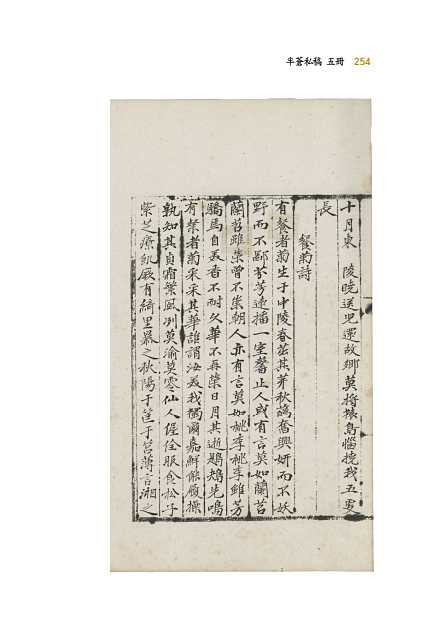 半蒼私稿 五冊 254
十月東 陵曉送児還故鄉莫將猿鳥惱撓我五更
長
餐菊詩
有餐者菊生于中陵春茁其芽秋蕍奮興妍而不妖
野而不鄙芬芳遠播一室馨止人或有言莫如蘭苕
蘭苕雖柴曽不崇朝人亦有言莫如桃李桃李雖芳
驕馬自美香不耐久華不再榮日月其逝鶗鴂先鳴
有餐者菊采采其華誰謂汝美我獨爾嘉鮮能履操
孰知其貞霜葉風洌莫渝莫零仙人偓佺服食松子
紫芝療飢厥有綺里暴之秋陽于筐于筥薄言湘之